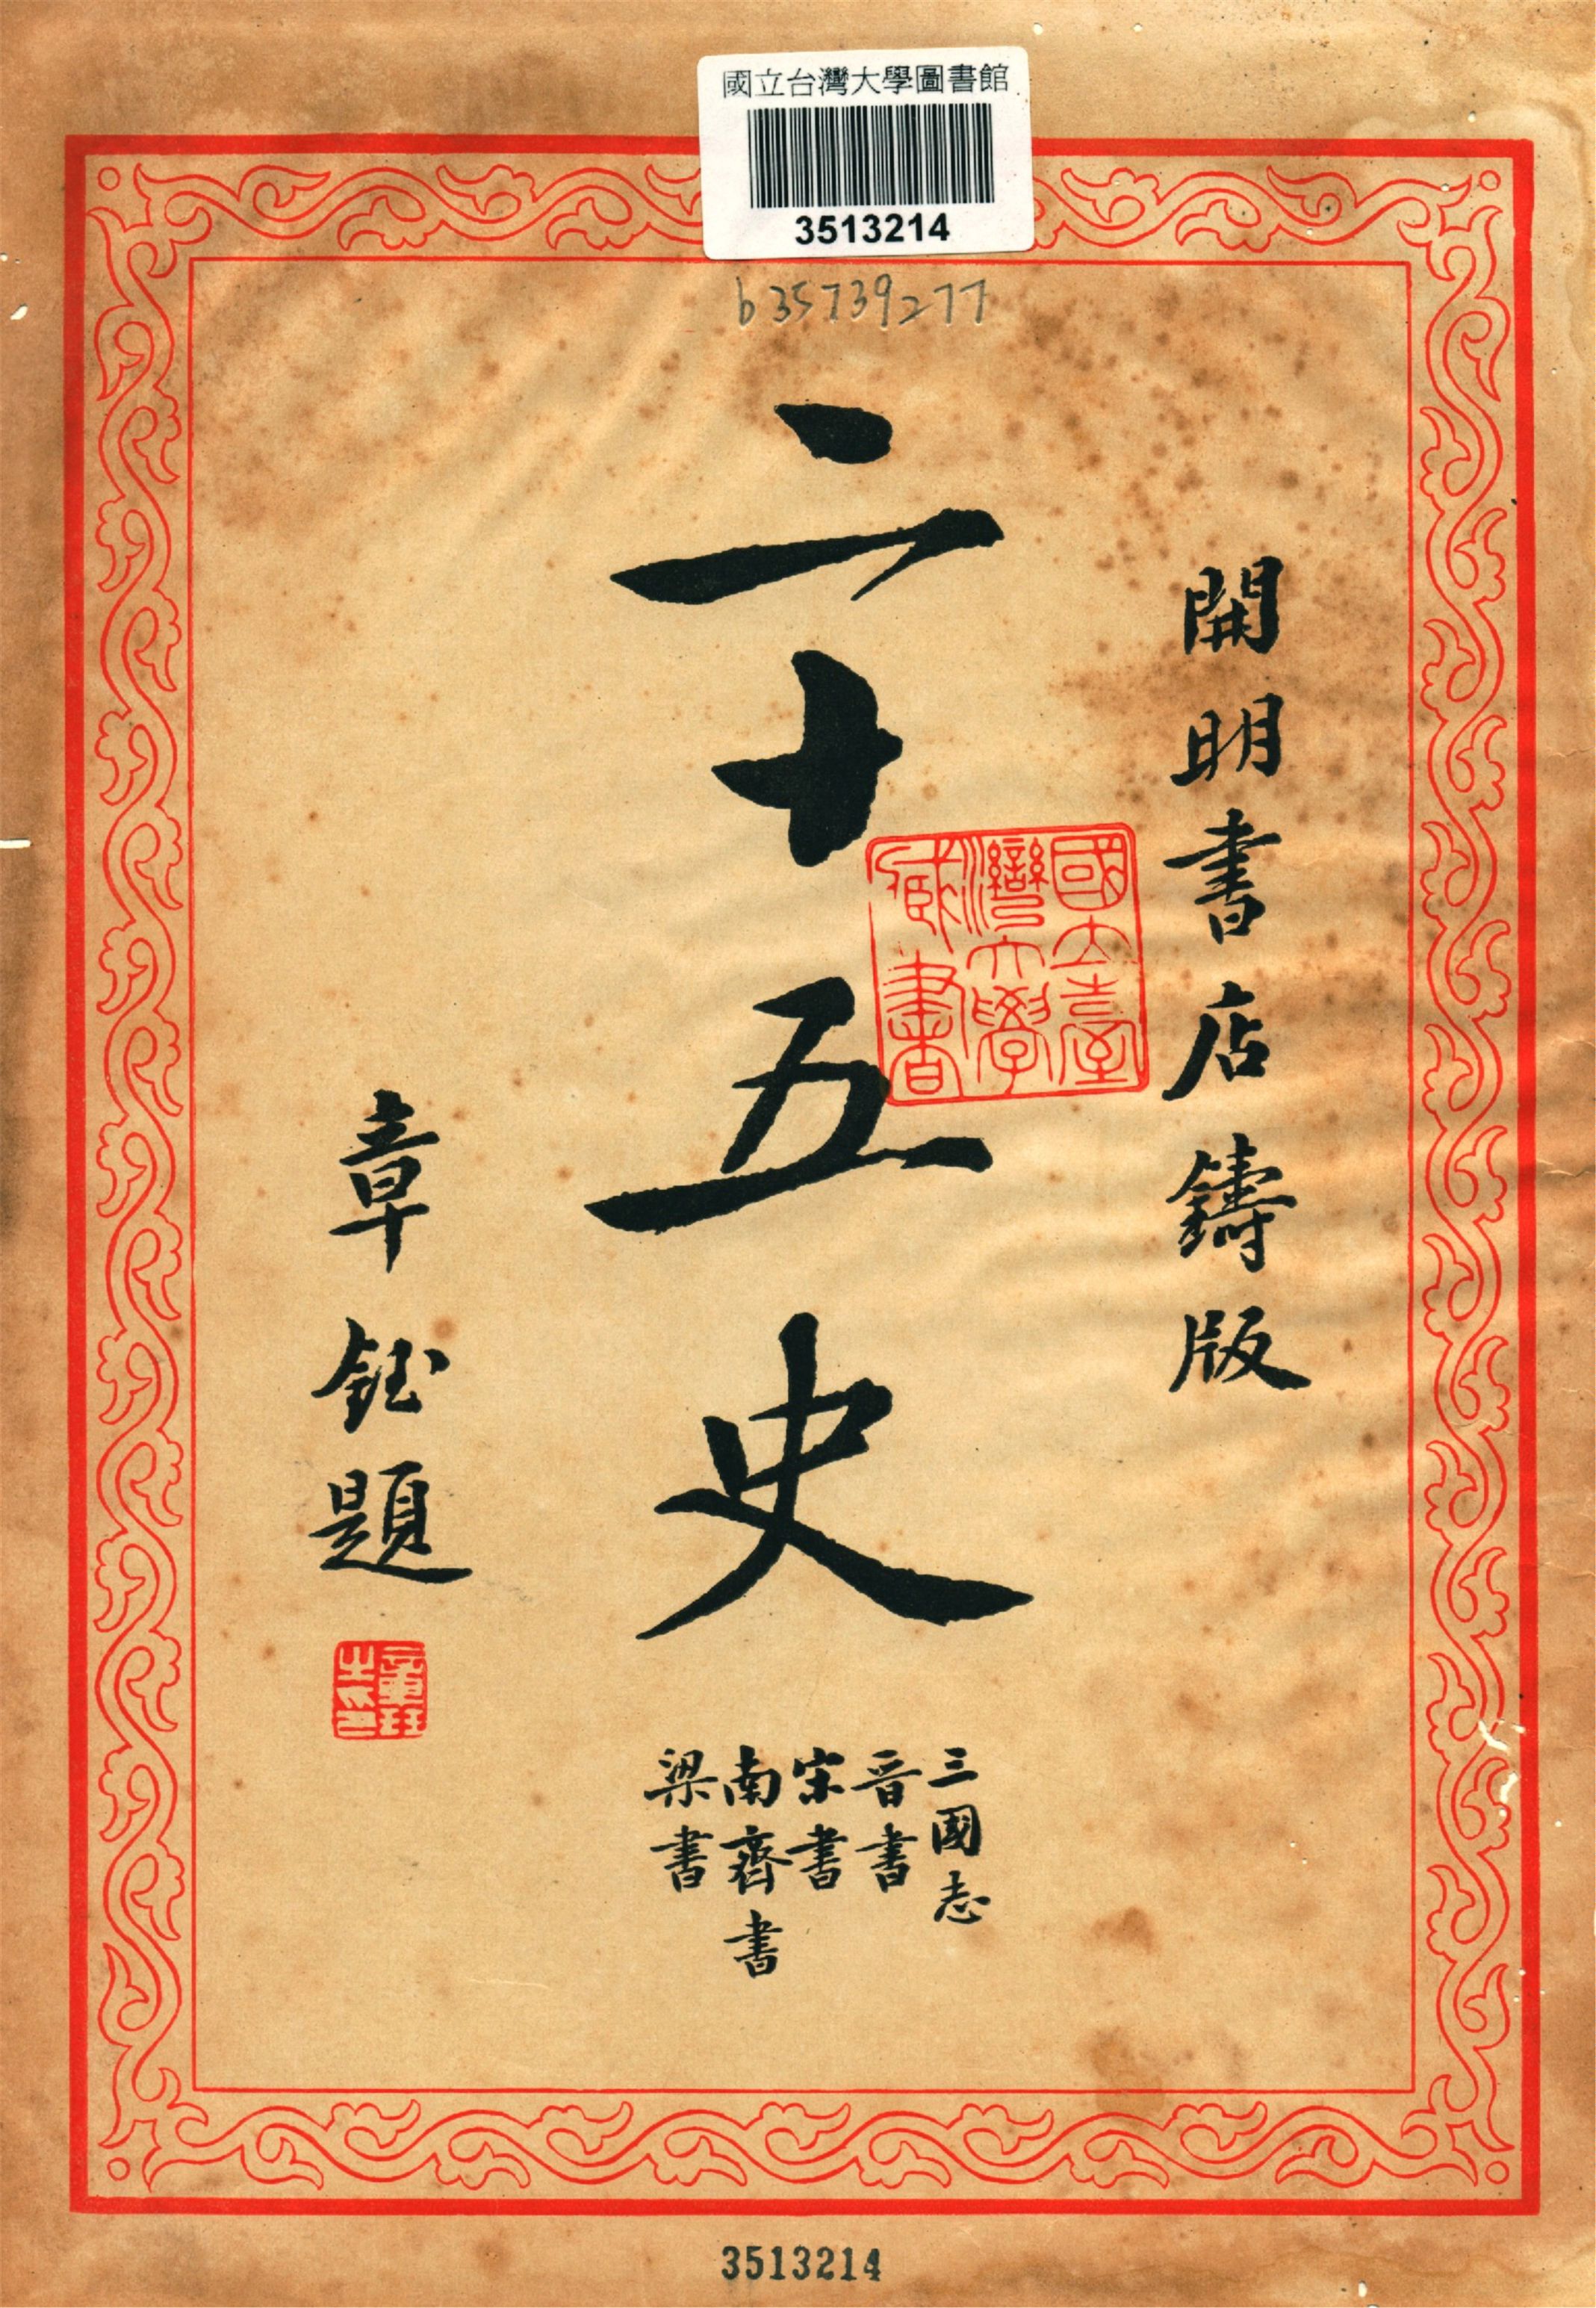 國立台灣大學圖書館
3513214
b35739277
開明書店鑄版
二十五史
國立臺
灣大學
藏書
三國志
晉書
宋書
南齊書
梁書
章鈺題
3513214